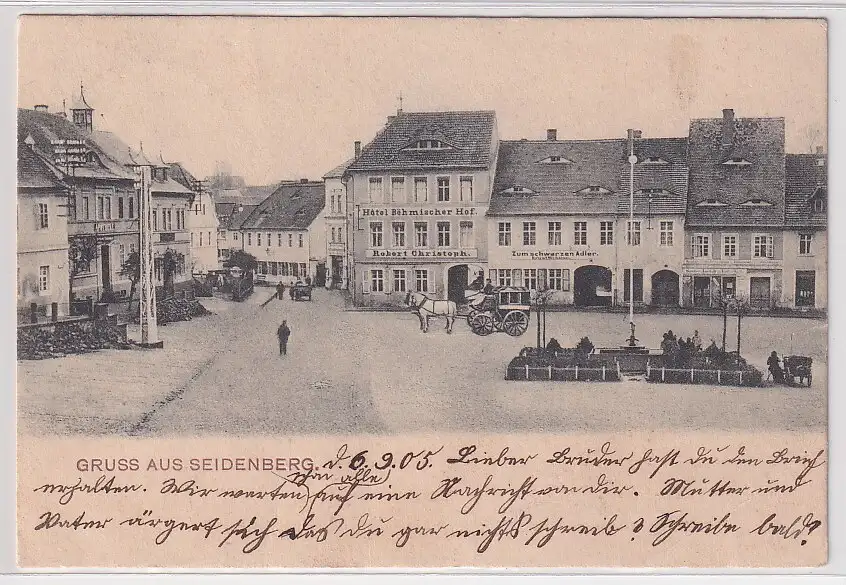 Hôtel Böhmischer Hof.
Robert Christoph.
Zum schwarzen Adler.
GRUSS AUS SEIDENBERG. d. 6.9.05. Lieber Bruder hast du den Brief
erhalten. Wir warten (schon alle) auf eine Nachricht von dir. Mutter und
Vater ärgert sich das du gar nichts schreib? Schreibe bald?